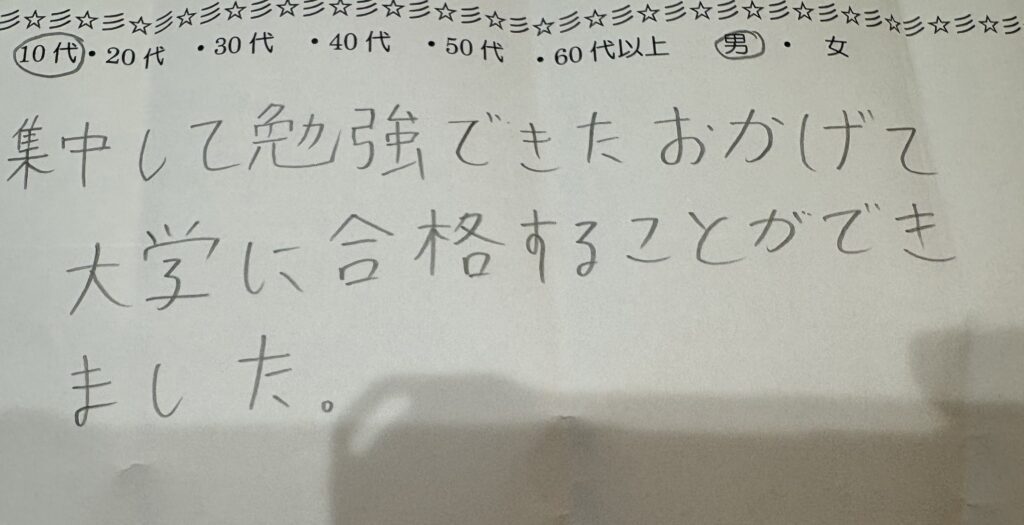 彡☆彡☆彡☆彡☆彡☆彡☆彡☆彡☆彡☆彡☆彡☆彡☆彡☆彡☆彡☆彡☆彡☆彡☆彡☆彡
10代・20代・30代・40代・50代・60代以上 男・女
集中して勉強できたおかげて
大学に合格することができ
ました。